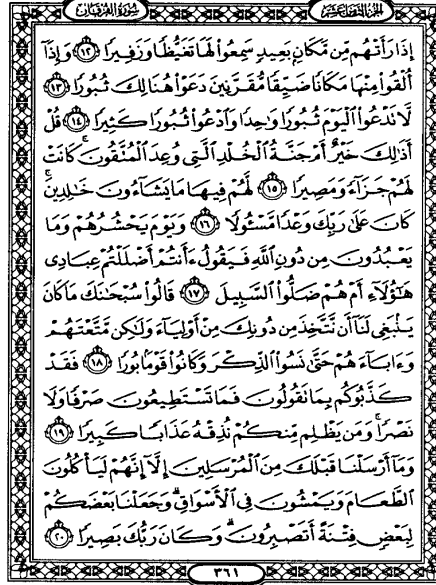 سُورَةُ الفُرْقَان
الجُزْءُ الثَّامِنُ عَشَرَ
إِذَا رَأَتْهُم مِّن مَّكَانٍ بَعِيدٍ سَمِعُوا۟ لَهَا تَغَيُّظًا وَزَفِيرًا ١٢ وَإِذَآ
أُلْقُوا۟ مِنْهَا مَكَانًا ضَيِّقًا مُّقَرَّنِينَ دَعَوْا۟ هُنَالِكَ ثُبُورًا ١٣
لَّا تَدْعُوا۟ ٱلْيَوْمَ ثُبُورًا وَٰحِدًا وَٱدْعُوا۟ ثُبُورًا كَثِيرًا ١٤ قُلْ
أَذَٰلِكَ خَيْرٌ أَمْ جَنَّةُ ٱلْخُلْدِ ٱلَّتِى وُعِدَ ٱلْمُتَّقُونَ ۚ كَانَتْ
لَهُمْ جَزَآءً وَمَصِيرًا ١٥ لَّهُمْ فِيهَا مَا يَشَآءُونَ خَٰلِدِينَ ۚ
كَانَ عَلَىٰ رَبِّكَ وَعْدًا مَّسْـُٔولًا ١٦ وَيَوْمَ يَحْشُرُهُمْ وَمَا
يَعْبُدُونَ مِن دُونِ ٱللَّهِ فَيَقُولُ ءَأَنتُمْ أَضْلَلْتُمْ عِبَادِى
هَٰٓؤُلَآءِ أَمْ هُمْ ضَلُّوا۟ ٱلسَّبِيلَ ١٧ قَالُوا۟ سُبْحَٰنَكَ مَا كَانَ
يَنۢبَغِى لَنَآ أَن نَّتَّخِذَ مِن دُونِكَ مِنْ أَوْلِيَآءَ وَلَٰكِن مَّتَّعْتَهُمْ
وَءَابَآءَهُمْ حَتَّىٰ نَسُوا۟ ٱلذِّكْرَ وَكَانُوا۟ قَوْمًۢا بُورًا ١٨ فَقَدْ
كَذَّبُوكُم بِمَا تَقُولُونَ فَمَا تَسْتَطِيعُونَ صَرْفًا وَلَا
نَصْرًا ۚ وَمَن يَظْلِم مِّنكُمْ نُذِقْهُ عَذَابًا كَبِيرًا ١٩
وَمَآ أَرْسَلْنَا قَبْلَكَ مِنَ ٱلْمُرْسَلِينَ إِلَّآ إِنَّهُمْ لَيَأْكُلُونَ
ٱلطَّعَامَ وَيَمْشُونَ فِى ٱلْأَسْوَاقِ ۗ وَجَعَلْنَا بَعْضَكُمْ
لِبَعْضٍ فِتْنَةً أَتَصْبِرُونَ ۗ وَكَانَ رَبُّكَ بَصِيرًا ٢٠
٣٦١